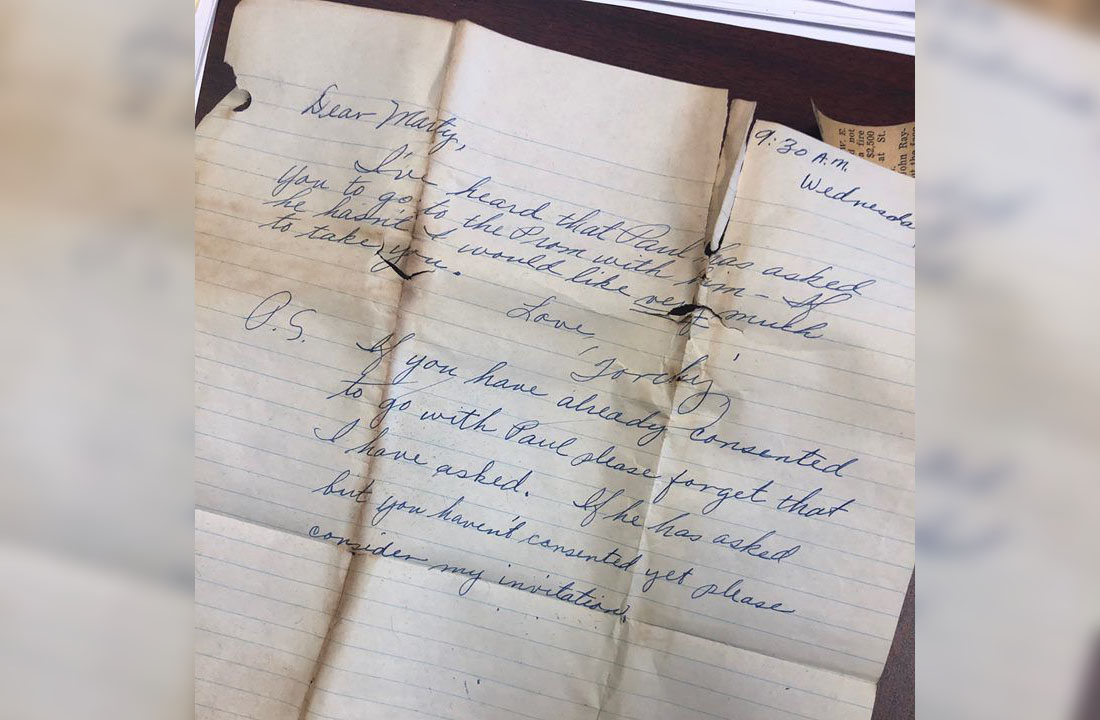 9:30 A.M.
Wednesda
Dear Marty,
I've heard that Paul has asked
you to go to the Prom with him — If
he hasn't I would like very much
to take you.
Love,
'Torchy'
P.S. If you have already consented
to go with Paul please forget that
I have asked. If he has asked
but you haven't consented yet please
consider my invitation.
W. E.
not
a fire
$2,500
at St.
John Ray-